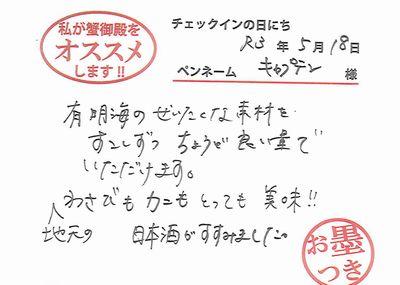 私が蟹御殿を
オススメ
します!!
チェックインの日にち
R3 年 5月 18日
ペンネーム キャプテン 様
有明海のぜいたくな素材を
すこしずつ ちょうど良い量で
いただけます。
わさびもカニもとっても 美味!!
地天の 日本酒がすすみました。
お墨
つき